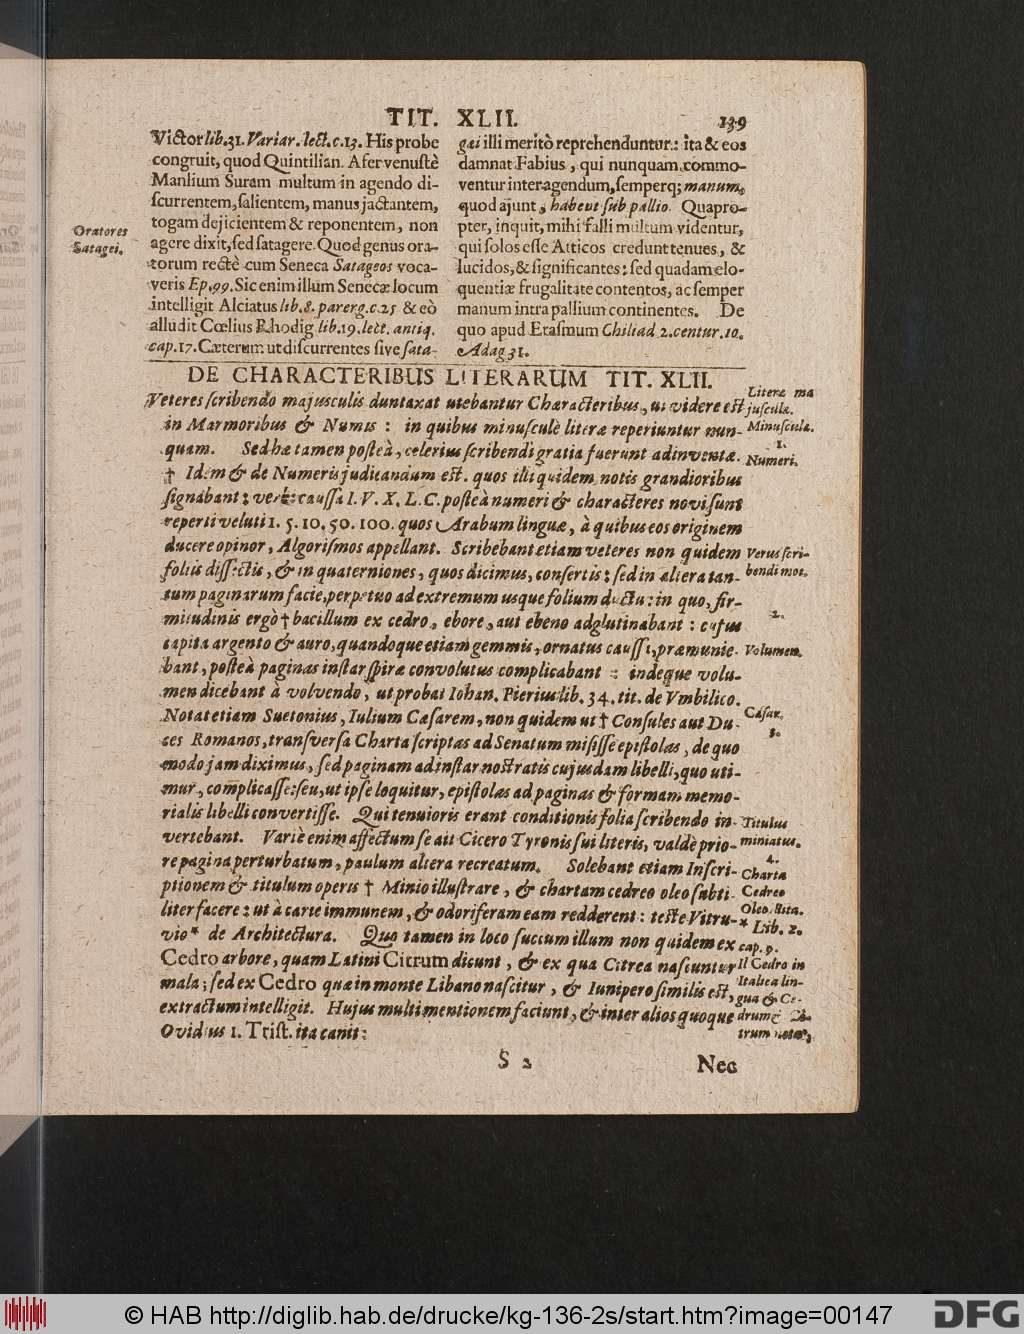 TIT. XLII. 139
Victor lib. 31. Variar. lect. c. 13. His probe
congruit, quod Quintilian. Afer venustè
Manlium Suram multum in agendo di-
scurrentem, salientem, manus jactantem,
togam dejicientem & reponentem, non
agere dixit, sed satagere. Quod genus ora-
torum rectè cum Seneca Satageos voca-
veris Ep. 99. Sic enim illum Senecæ locum
intelligit Alciatus lib. 8. parerg. c. 25 & eò
alludit Cœlius Rhodig. lib. 19. lect. antiq.
cap. 17. Cæterum ut discurrentes sive sata-
Oratores
Satagei.
gei illi meritò reprehenduntur: ita & eos
damnat Fabius, qui nunquam commo-
ventur inter agendum, semperq; manum,
quod ajunt, habent sub pallio. Quapro-
pter, inquit, mihi falli multum videntur,
qui solos esse Atticos credunt tenues, &
lucidos, & significantes: sed quadam elo-
quentiæ frugalitate contentos, ac semper
manum intra pallium continentes. De
quo apud Erasmum Chiliad 2. centur. 10.
Adag 31.
DE CHARACTERIBUS LITERARUM TIT. XLII.
Veteres scribendo majusculis duntaxat utebantur Characteribus, ut videre est
in Marmoribus & Numis: in quibus minusculè literæ reperiuntur nun-
quam. Sed hæ tamen posteà, celerius scribendi gratia fuerunt adinventæ.
† Idem & de Numeris judicandum est. quos illi quidem notis grandioribus
signabant: verbi caussa I. V. X. L. C. posteà numeri & characteres novi sunt
reperti veluti 1. 5. 10. 50. 100. quos Arabum linguæ, à quibus eos originem
ducere opinor, Algorismos appellant. Scribebant etiam veteres non quidem
foliis dissectis, & in quaterniones, quos dicimus, consertis: sed in altera tan-
tum paginarum facie, perpetuo ad extremum usque folium ductu: in quo, fir-
mitudinis ergò † bacillum ex cedro, ebore, aut ebeno adglutinabant: cujus
capita argento & auro, quandoque etiam gemmis, ornatus caussa, præmunie-
bant, posteà paginas instar spiræ convolutus complicabant: indeque volu-
men dicebant à volvendo, ut probat Iohan. Pierius lib. 34. tit. de Vmbilico.
Notat etiam Suetonius, Iulium Cæsarem, non quidem ut † Consules aut Du-
ces Romanos, transversa Charta scriptas ad Senatum misisse epistolas, de quo
modo jam diximus, sed paginam ad instar nostratis cujusdam libelli, quo uti-
mur, complicasse: seu, ut ipse loquitur, epistolas ad paginas & formam memo-
rialis libelli convertisse. Qui tenuioris erant conditionis folia scribendo in-
vertebant. Variè enim affectum se ait Cicero Tyronis sui literis, valdè prio-
re pagina perturbatum, paulum altera recreatum. Solebant etiam Inscri-
ptionem & titulum operis † Minio illustrare, & chartam cedreo oleo subti-
liter facere: ut à carie immunem, & odoriferam eam redderent: teste Vitru-
vio * de Architectura. Quo tamen in loco succum illum non quidem ex
Cedro arbore, quam Latini Citrum dicunt, & ex qua Citrea nascuntur
mala; sed ex Cedro quæ in monte Libano nascitur, & Iunipero similis est,
extractum intelligit. Hujus multi mentionem faciunt, & inter alios quoque
Ovidius 1. Trist. ita canit:
Literæ ma
jusculæ.
Minusculæ.
1.
Numeri.
Verus scri-
bendi mos.
2.
Volumen.
Cæsar.
3.
Titulus
miniatus.
4.
Charta
Cedreo
Oleo lita.
* Lib. 2.
cap. 9.
Il Cedro in
Italica lin-
gua & Ce-
drum
trum
S 2 Nec
© HAB http://diglib.hab.de/drucke/kg-136-2s/start.htm?image=00147
DFG